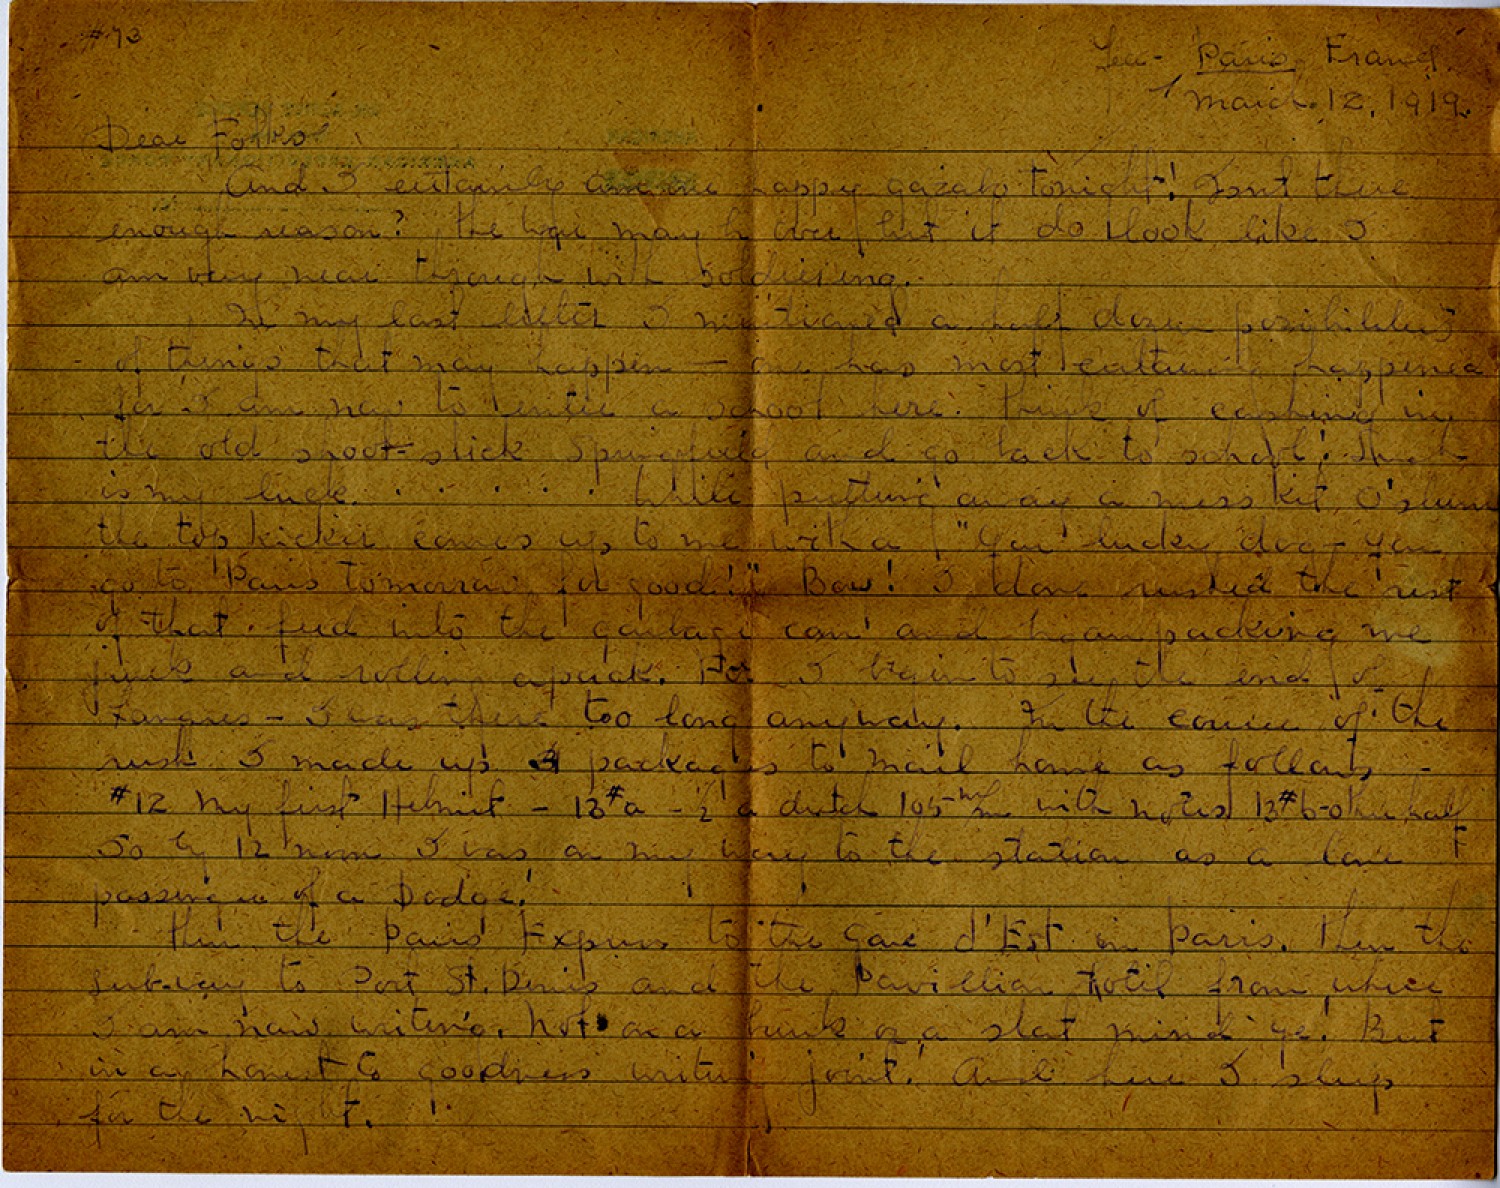 #73
Paris, France
March 12, 1919.
Dear Folks
And I certainly am one happy gazabo tonight! Isn't there
enough reason? The hope may be over but it do look like I
am very near through with soldiering.
In my last letter I mentioned a half dozen possibilities
of things that may happen — one has most certainly happened
for I am now to enter a school here. Think of cashing in
the old shoot-stick Springfield and go back to school! Such
is my luck. . . . . . While putting away a mess kit O'slum
the top kicker comes up to me with a "You lucky dog - you
go to Paris tomorrow for good!" Bow! I done rushed the rest
of that feed into the garbage can and began packing me
junk and rolling a pack. For I begin to see the end of
Langres - I was there too long anyway. In the course of the
rush I made up 4 packages to mail home as follows -
#12 My first Helmet - 13#a - ½ a dutch 105 mm with notes 13#b - other half
So by 12 noon I was on my way to the station as a lone
passenger of a Dodge!
Then the Paris Express to the Gare d'Est in Paris. Then the
subway to Port St. Denis and the Pavillian Hotel from where
I am now writing. Not on a bunk or a slat mind ye! But
in an honest to goodness writin' joint! And here I sleep
for the night. !